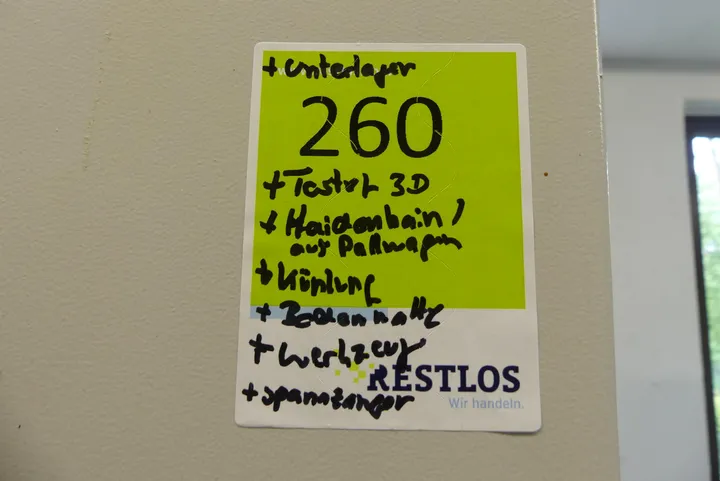 + Unterlagen
260
+ Taster 3D
+ Haidenhain /
auf Pallwagen
+ Kühlung
+ Bodenmatte
+ Werkzeug
RESTLOS
Wir handeln.
+ Spannzangen